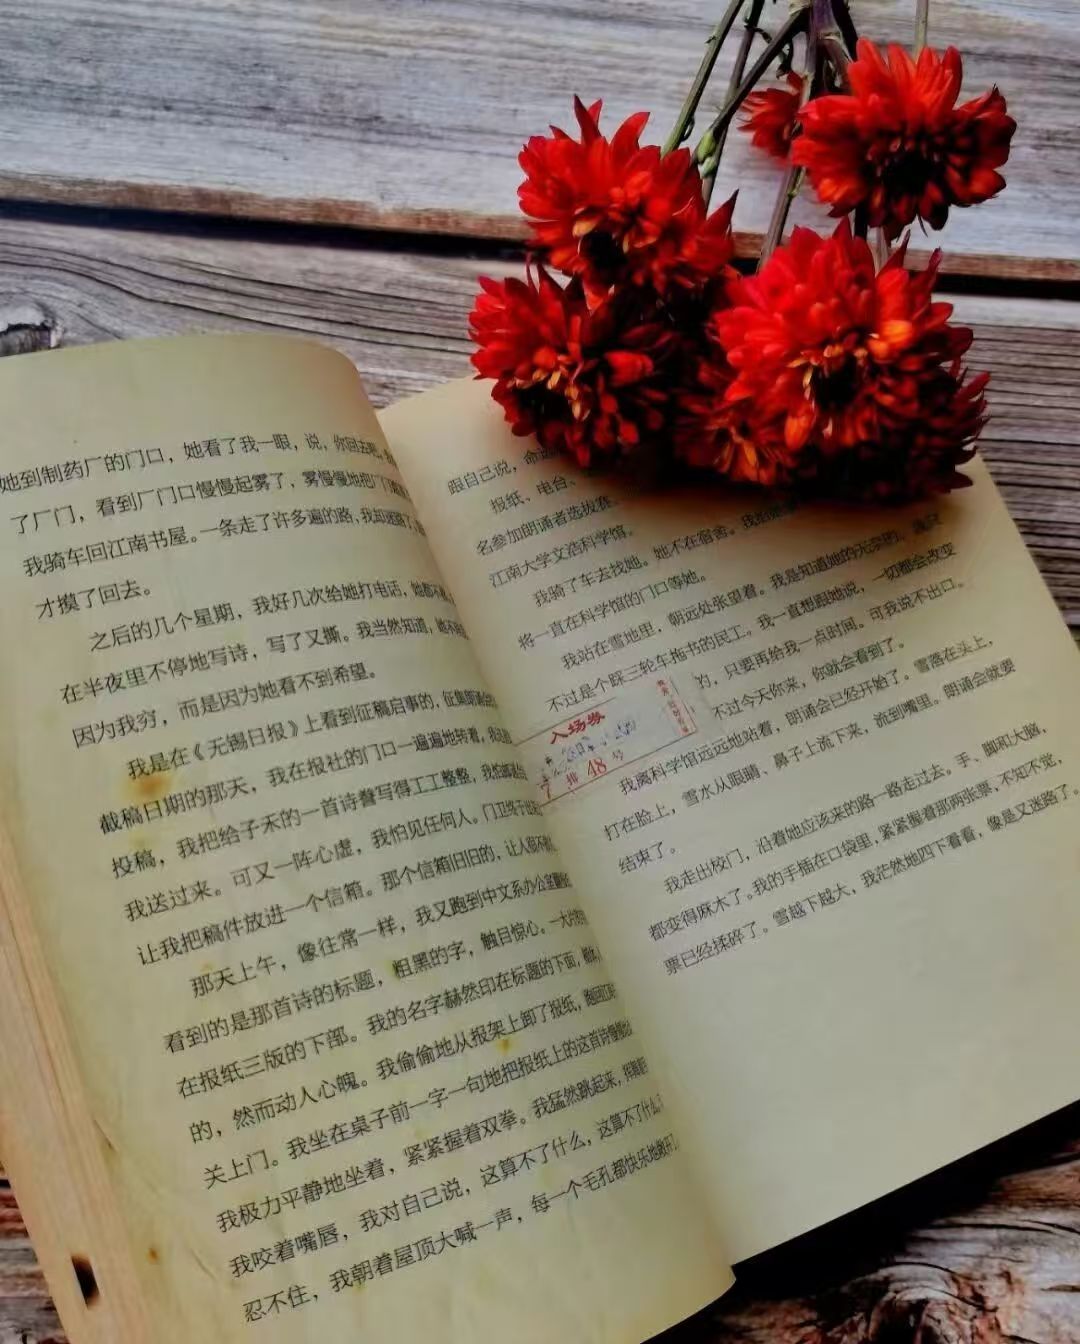 她到制药厂的门口，她看了我一眼，说，你回去吧，
了厂门，看到厂门口慢慢起雾了，雾慢慢地把厂门
我骑车回江南书屋。一条走了许多遍的路，我却迷路了，
才摸了回去。
之后的几个星期，我好几次给她打电话，她都不
在半夜里不停地写诗，写了又撕。我当然知道，她不
因为我穷，而是因为她看不到希望。
我是在《无锡日报》上看到征稿启事的，征集朗诵会
截稿日期的那天，我在报社的门口一遍遍地转着，
投稿，我把给子禾的一首诗誊写得工工整整，我怕
我送过来。可又一阵心虚，我怕见任何人。门卫终于
让我把稿件放进一个信箱。那个信箱旧旧的，让人很不
那天上午，像往常一样，我又跑到中文系办公室
看到的是那首诗的标题，粗黑的字，触目惊心。一大片
在报纸三版的下部。我的名字赫然印在标题的下面，
的，然而动人心魄。我偷偷地从报架上卸了报纸，跑回
关上门。我坐在桌子前一字一句地把报纸上的这首诗慢慢
我极力平静地坐着，紧紧握着双拳。我猛然跳起来，
我咬着嘴唇，我对自己说，这算不了什么，这算不了什么。
忍不住，我朝着屋顶大喊一声，每一个毛孔都快乐地敞开
跟自己说，命运
报纸、电台、
名参加朗诵者选拔赛
江南大学文浩科学馆。
我骑了车去找她。她不在宿舍。我
将一直在科学馆的门口等她。
我站在雪地里，朝远处张望着。我是知道她的无奈的，
不过是个踩三轮车拖书的民工。我一直想跟她说，一切都会改变
的，只要再给我一点时间。可我说不出口。
不过今天你来，你就会看到了。
入场券
7 排 18 号
我离科学馆远远地站着，朗诵会已经开始了。雪落在头上，
打在脸上，雪水从眼睛、鼻子上流下来，流到嘴里。朗诵会就要
结束了。
我走出校门，沿着她应该来的路一路走过去。手、脚和大脑，
都变得麻木了。我的手插在口袋里，紧紧握着那两张票，不知不觉，
票已经揉碎了。雪越下越大，我茫然地四下看看，像是又迷路了。